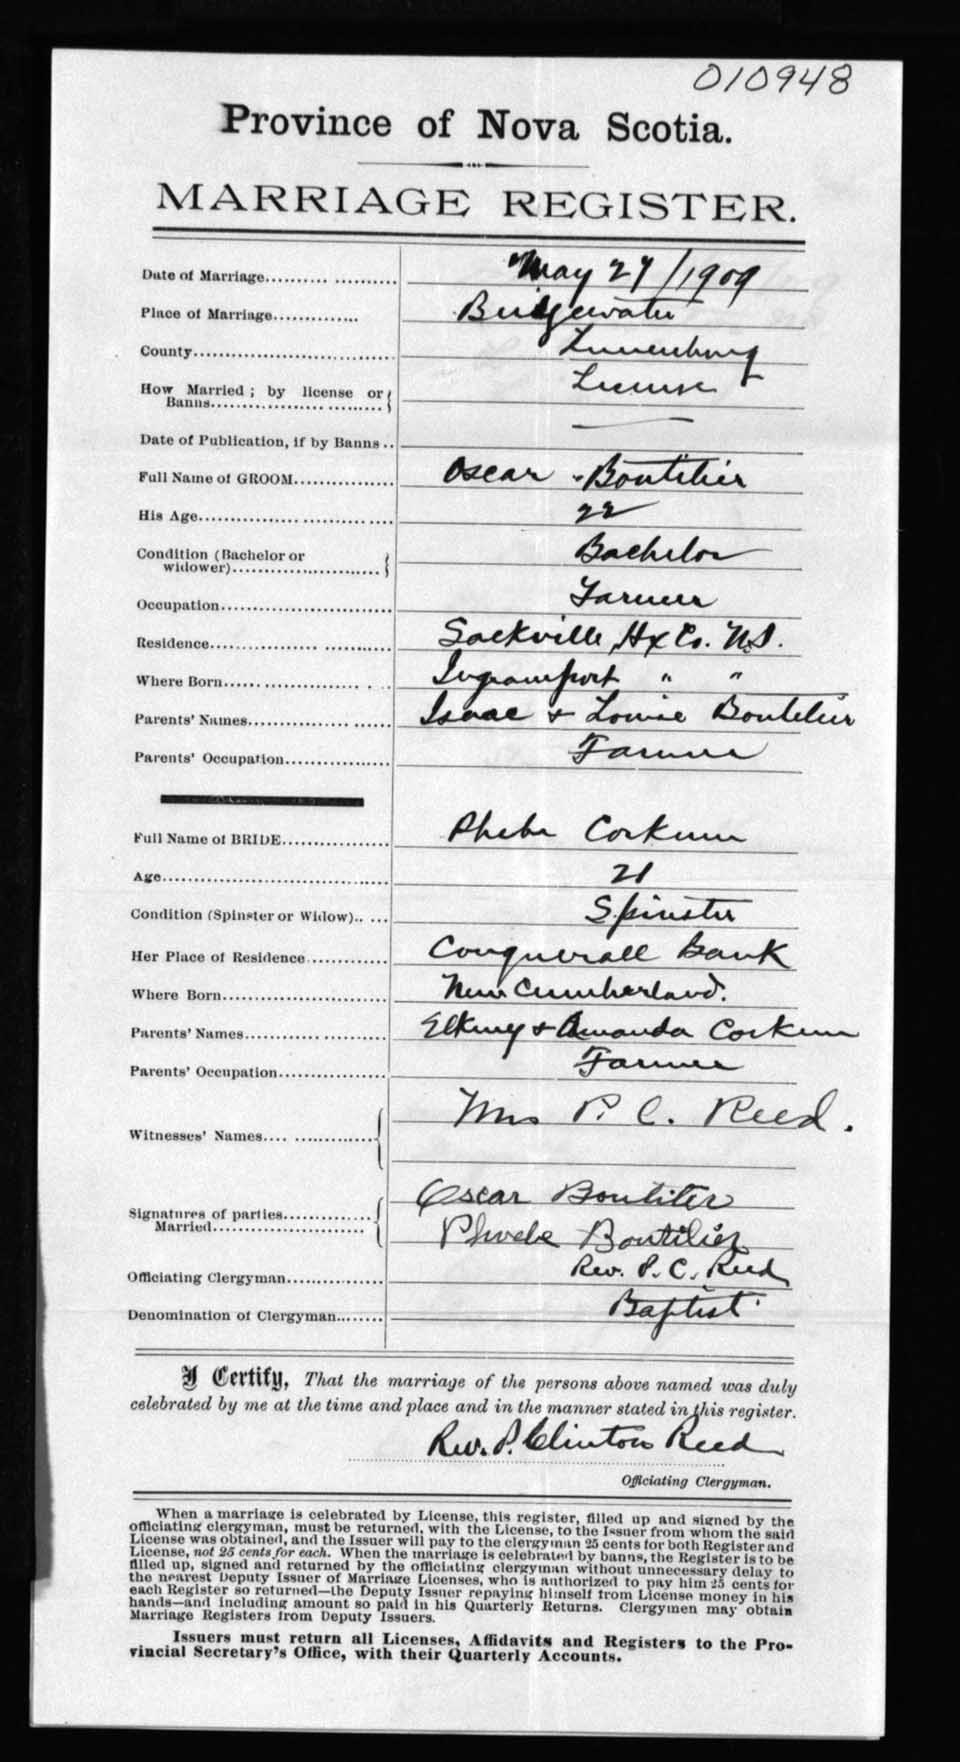 010948
Province of Nova Scotia.
MARRIAGE REGISTER.
Date of Marriage........... May 27/1909
Place of Marriage............. Bridgewater
County................................. Lunenburg
How Married ; by license or
Banns........................... License
Date of Publication, if by Banns .. —
Full Name of GROOM................. Oscar Boutilier
His Age................................ 22
Condition (Bachelor or
widower).......................... Bachelor
Occupation............................. Farmer
Residence.............................. Sackville, Hx Co. N.S.
Where Born............................. Ingramport " "
Parents' Names......................... Isaac & Louise Boutilier
Parents' Occupation.................. Farmer
Full Name of BRIDE.................. Phebe Corkum
Age..................................... 21
Condition (Spinster or Widow)..... Spinster
Her Place of Residence............. Conquerall Bank
Where Born............................. New Cumberland.
Parents' Names......................... & Amanda Corkum
Parents' Occupation.................. Farmer
Witnesses' Names.................... Mrs P. C. Reed.
Signatures of parties............... Oscar Boutilier
Married........................... Phoebe Boutilier
Officiating Clergyman............... Rev. P. C. Reed
Denomination of Clergyman........ Baptist
I Certify, That the marriage of the persons above named was duly
celebrated by me at the time and place and in the manner stated in this register.
Rev. P. Clinton Reed
Officiating Clergyman.
When a marriage is celebrated by License, this register, filled up and signed by the
officiating clergyman, must be returned, with the License, to the Issuer from whom the said
License was obtained, and the Issuer will pay to the clergyman 25 cents for both Register and
License, not 25 cents for each. When the marriage is celebrated by banns, the Register is to be
filled up, signed and returned by the officiating clergyman without unnecessary delay to
the nearest Deputy Issuer of Marriage Licenses, who is authorized to pay him 25 cents for
each Register so returned—the Deputy Issuer repaying himself from License money in his
hands—and including amount so paid in his Quarterly Returns. Clergymen may obtain
Marriage Registers from Deputy Issuers.
Issuers must return all Licenses, Affidavits and Registers to the Pro-
vincial Secretary's Office, with their Quarterly Accounts.